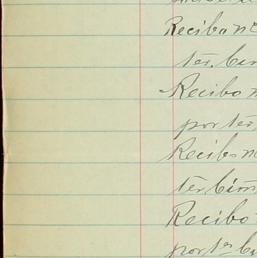 Recibo nº
ter. bim
Recibo n
por ter
Recibo n
ter bim
Recibo
por ter bi